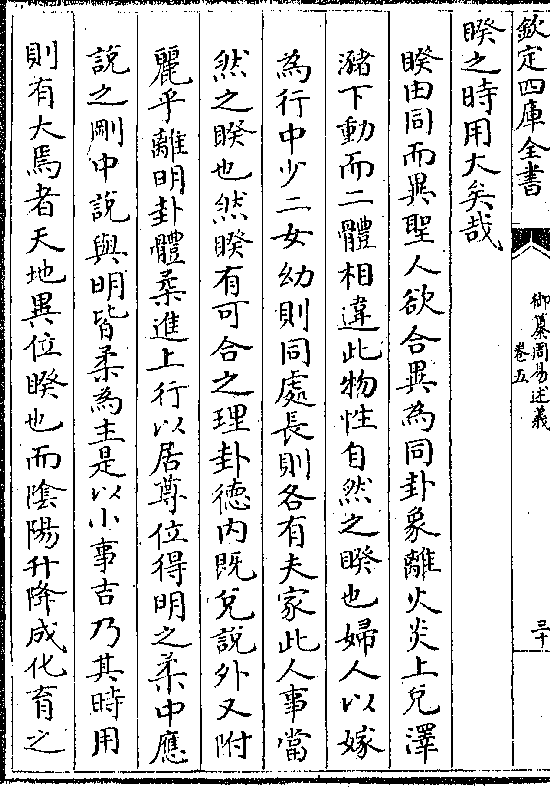 欽定四庫全書
御纂周易述義
卷五
三十
睽之時用大矣哉
睽由同而異聖人欲合異為同卦象離火炎上兌澤
瀦下動而二體相違此物性自然之睽也婦人以嫁
為行中少二女幼則同處長則各有夫家此人事當
然之睽也然睽有可合之理卦德內既兌說外又附
麗乎離明卦體柔進上行以居尊位得明之柔中應
說之剛中說與明皆柔為主是以小事吉乃其時用
則有大焉者天地異位睽也而陰陽升降成化育之